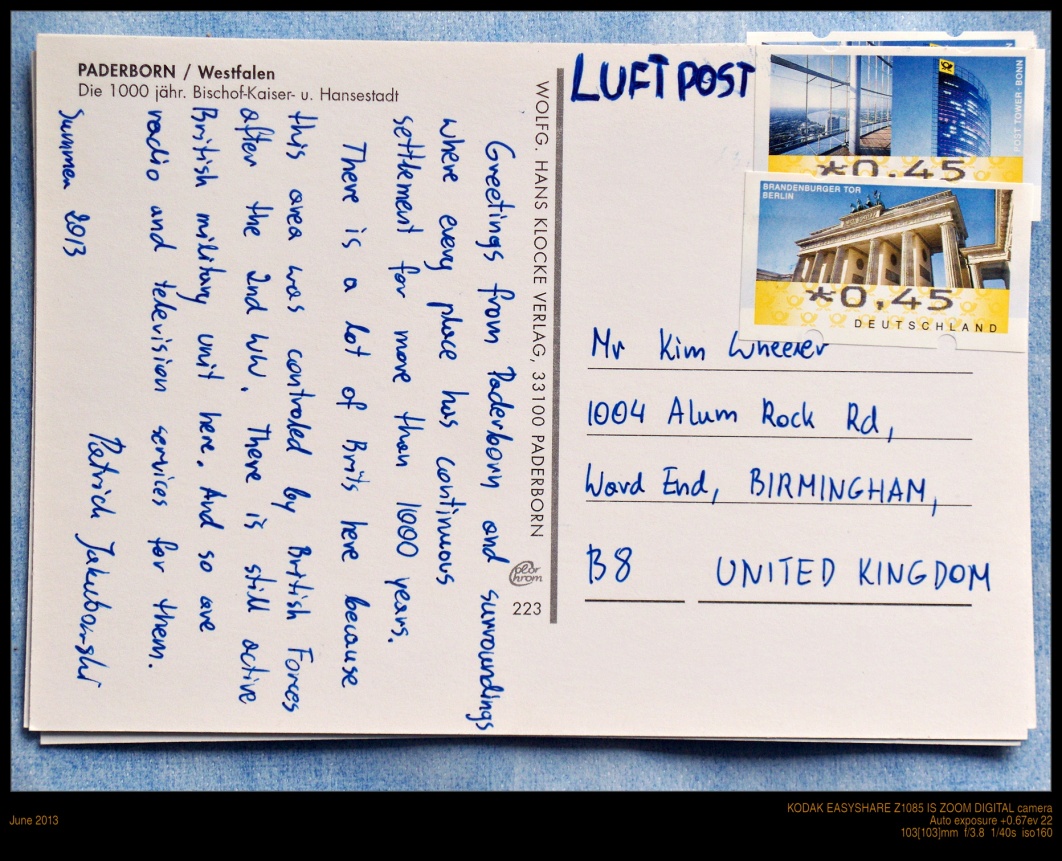 PADERBORN / Westfalen
Die 1000 jähr. Bischof-Kaiser- u. Hansestadt
Greetings from Paderborn and surroundings
where every place has continuous
settlement for more than 1000 years.
There is a lot of Brits here because
this area was controled by British Forces
after the 2nd WW. There is still active
British military unit here. And so are
radio and television services for them.
Summer 2013
Patrick Jakubowski
WOLFG. HANS KLOCKE VERLAG, 33100 PADERBORN
223
LUFTPOST
POST TOWER · BONN
*0.45
BRANDENBURGER TOR
BERLIN
*0,45
DEUTSCHLAND
Mr Kim Wheeler
1004 Alum Rock Rd,
Ward End, BIRMINGHAM,
B8 UNITED KINGDOM
June 2013
KODAK EASYSHARE Z1085 IS ZOOM DIGITAL camera
Auto exposure +0.67ev 22
103[103]mm f/3.8 1/40s iso160